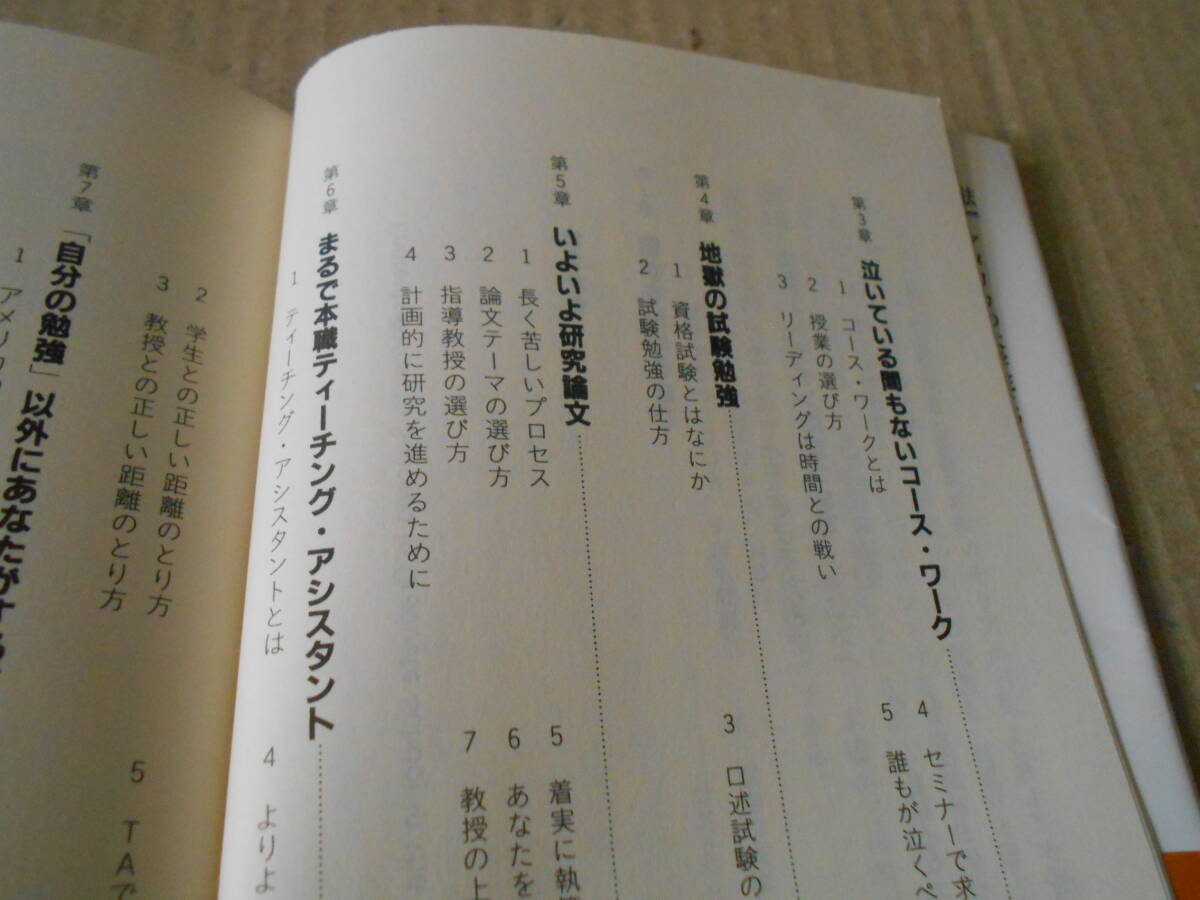 第3章 泣いている間もないコース・ワーク
1 コース・ワークとは
2 授業の選び方
3 リーディングは時間との戦い
4 セミナーで求
5 誰もが泣くペ
第4章 地獄の試験勉強
1 資格試験とはなにか
2 試験勉強の仕方
3 口述試験の
第5章 いよいよ研究論文
1 長く苦しいプロセス
2 論文テーマの選び方
3 指導教授の選び方
4 計画的に研究を進めるために
5 着実に執筆
6 あなたを
7 教授の上
第6章 まるで本職ティーチング・アシスタント
1 ティーチング・アシスタントとは
4 よりよ
2 学生との正しい距離のとり方
3 教授との正しい距離のとり方
5 TAで
第7章 「自分の勉強」以外にあなたがする
1 アメリカ